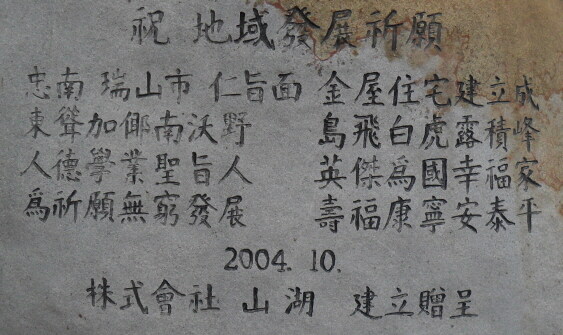 祝 地域發展祈願
忠南 瑞山市 仁旨面 金屋住宅建立成
東聳加倻南沃野 島飛白虎露積峰
人德學業聖旨人 英傑爲國幸福家
爲祈願無窮發展 壽福康寧安泰平
2004. 10.
株式會社 山湖 建立贈呈